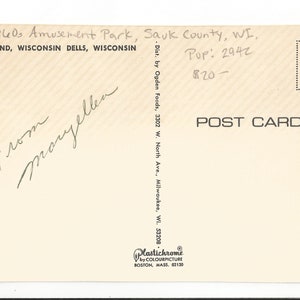 60s Amusement Park, Sauk County, WI.
ND, WISCONSIN DELLS, WISCONSIN
Pop: 2942
$20-
from
Maryellen
Dist. by Ogden Foods, 3202 W. North Ave., Milwaukee, Wi. 53208
POST CARD
Plastichrome
by COLOURPICTURE
BOSTON, MASS. 02130